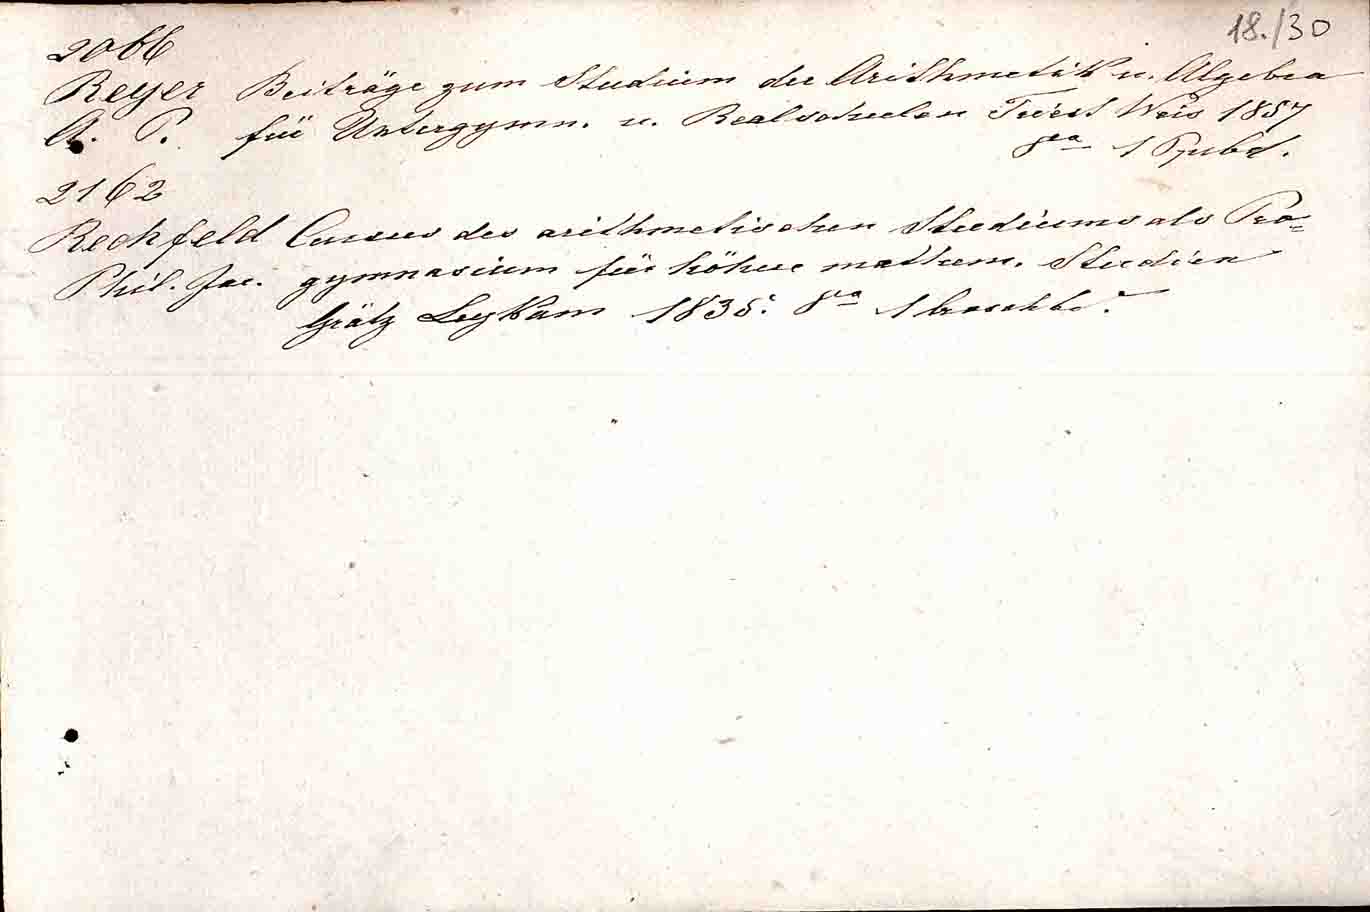 18./30
2066
Reyer Beiträge zum Studium der Arithmetik u. Algebra
A. P. für Untergymn. u. Realschulen Triest Weis 1857
8va 1 Ppbd.
2162
Rechfeld Cursus des arithmetischen Studiums als Pro=
Phil. Jac. gymnasium für höhere mathem. Studien
Grätz Leykam 1835. 8va 1 broschbd.